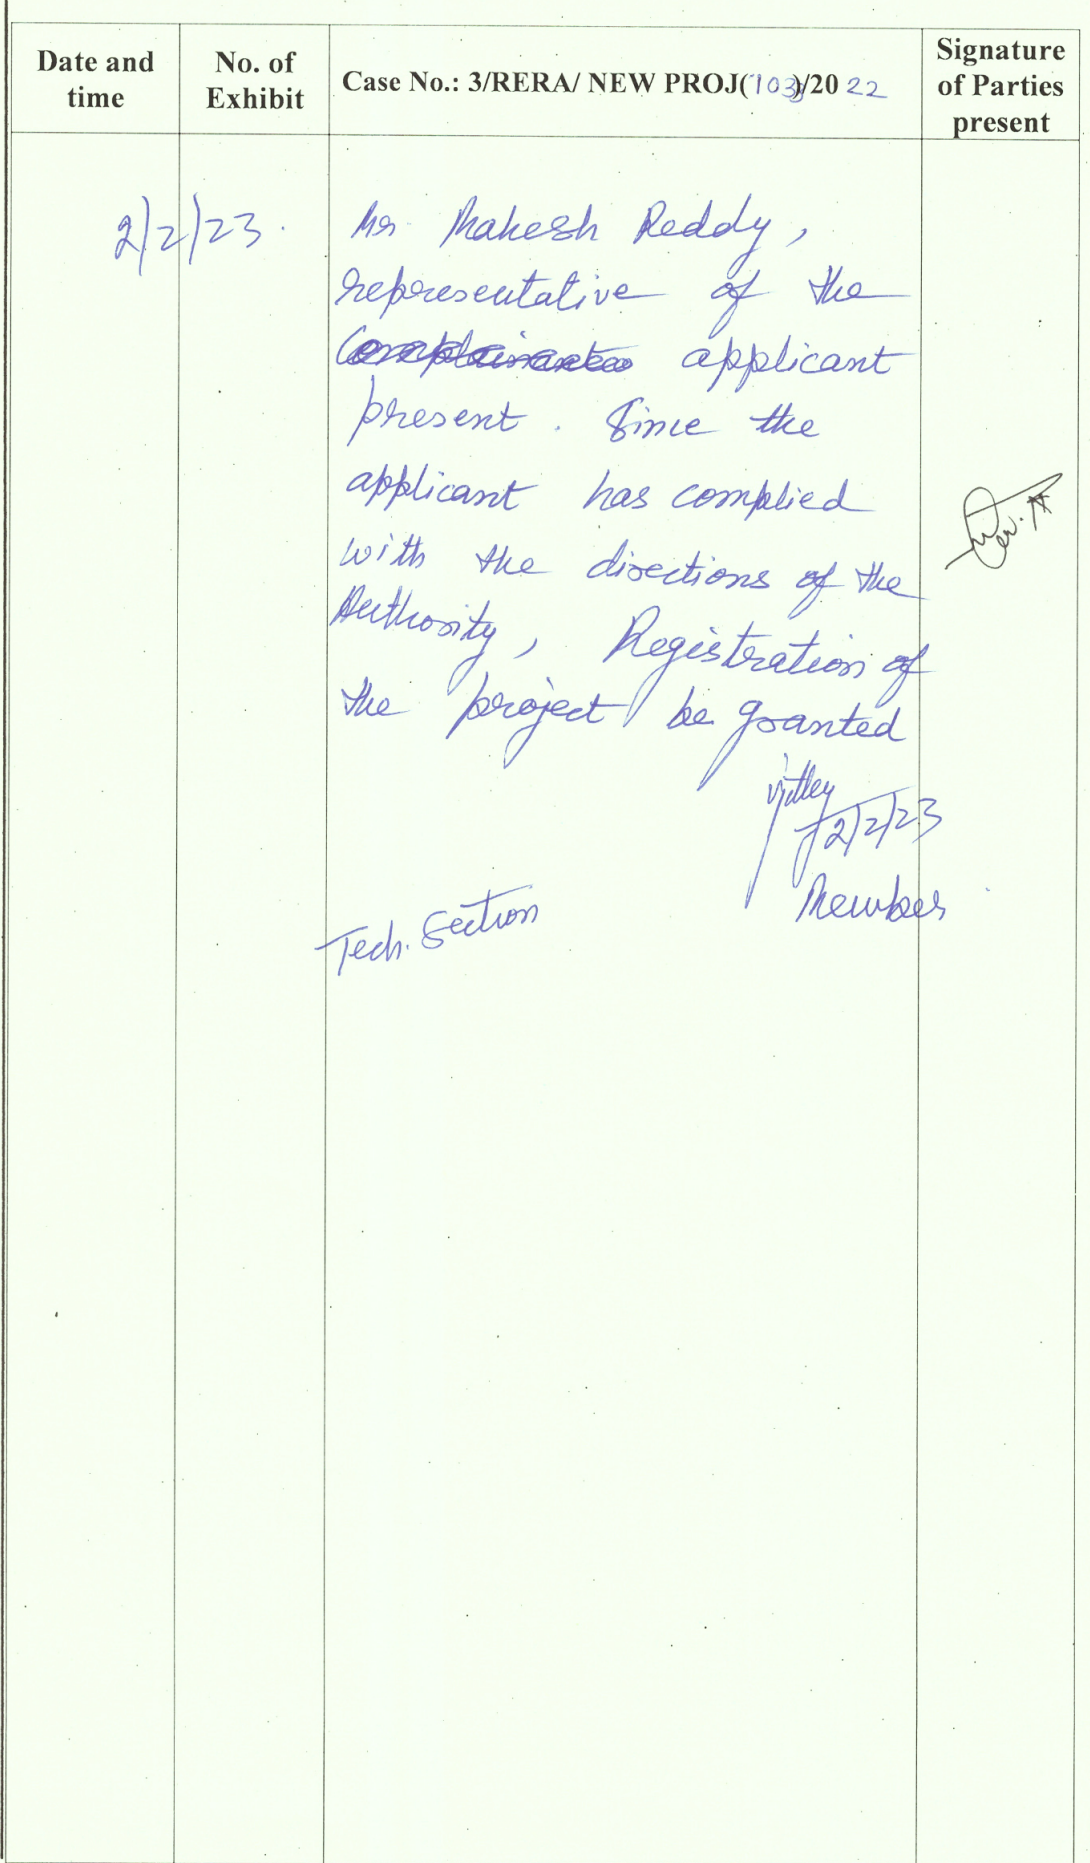 Date and time
No. of Exhibit
Case No.: 3/RERA/ NEW PROJ(103)/20 22
Signature of Parties present
2/2/23.
Mr. Mahesh Reddy,
representative of the
applicant
present. Since the
applicant has complied
with the directions of the
Authority, Registration of
the project be granted
2/2/23
Member
Tech. Section